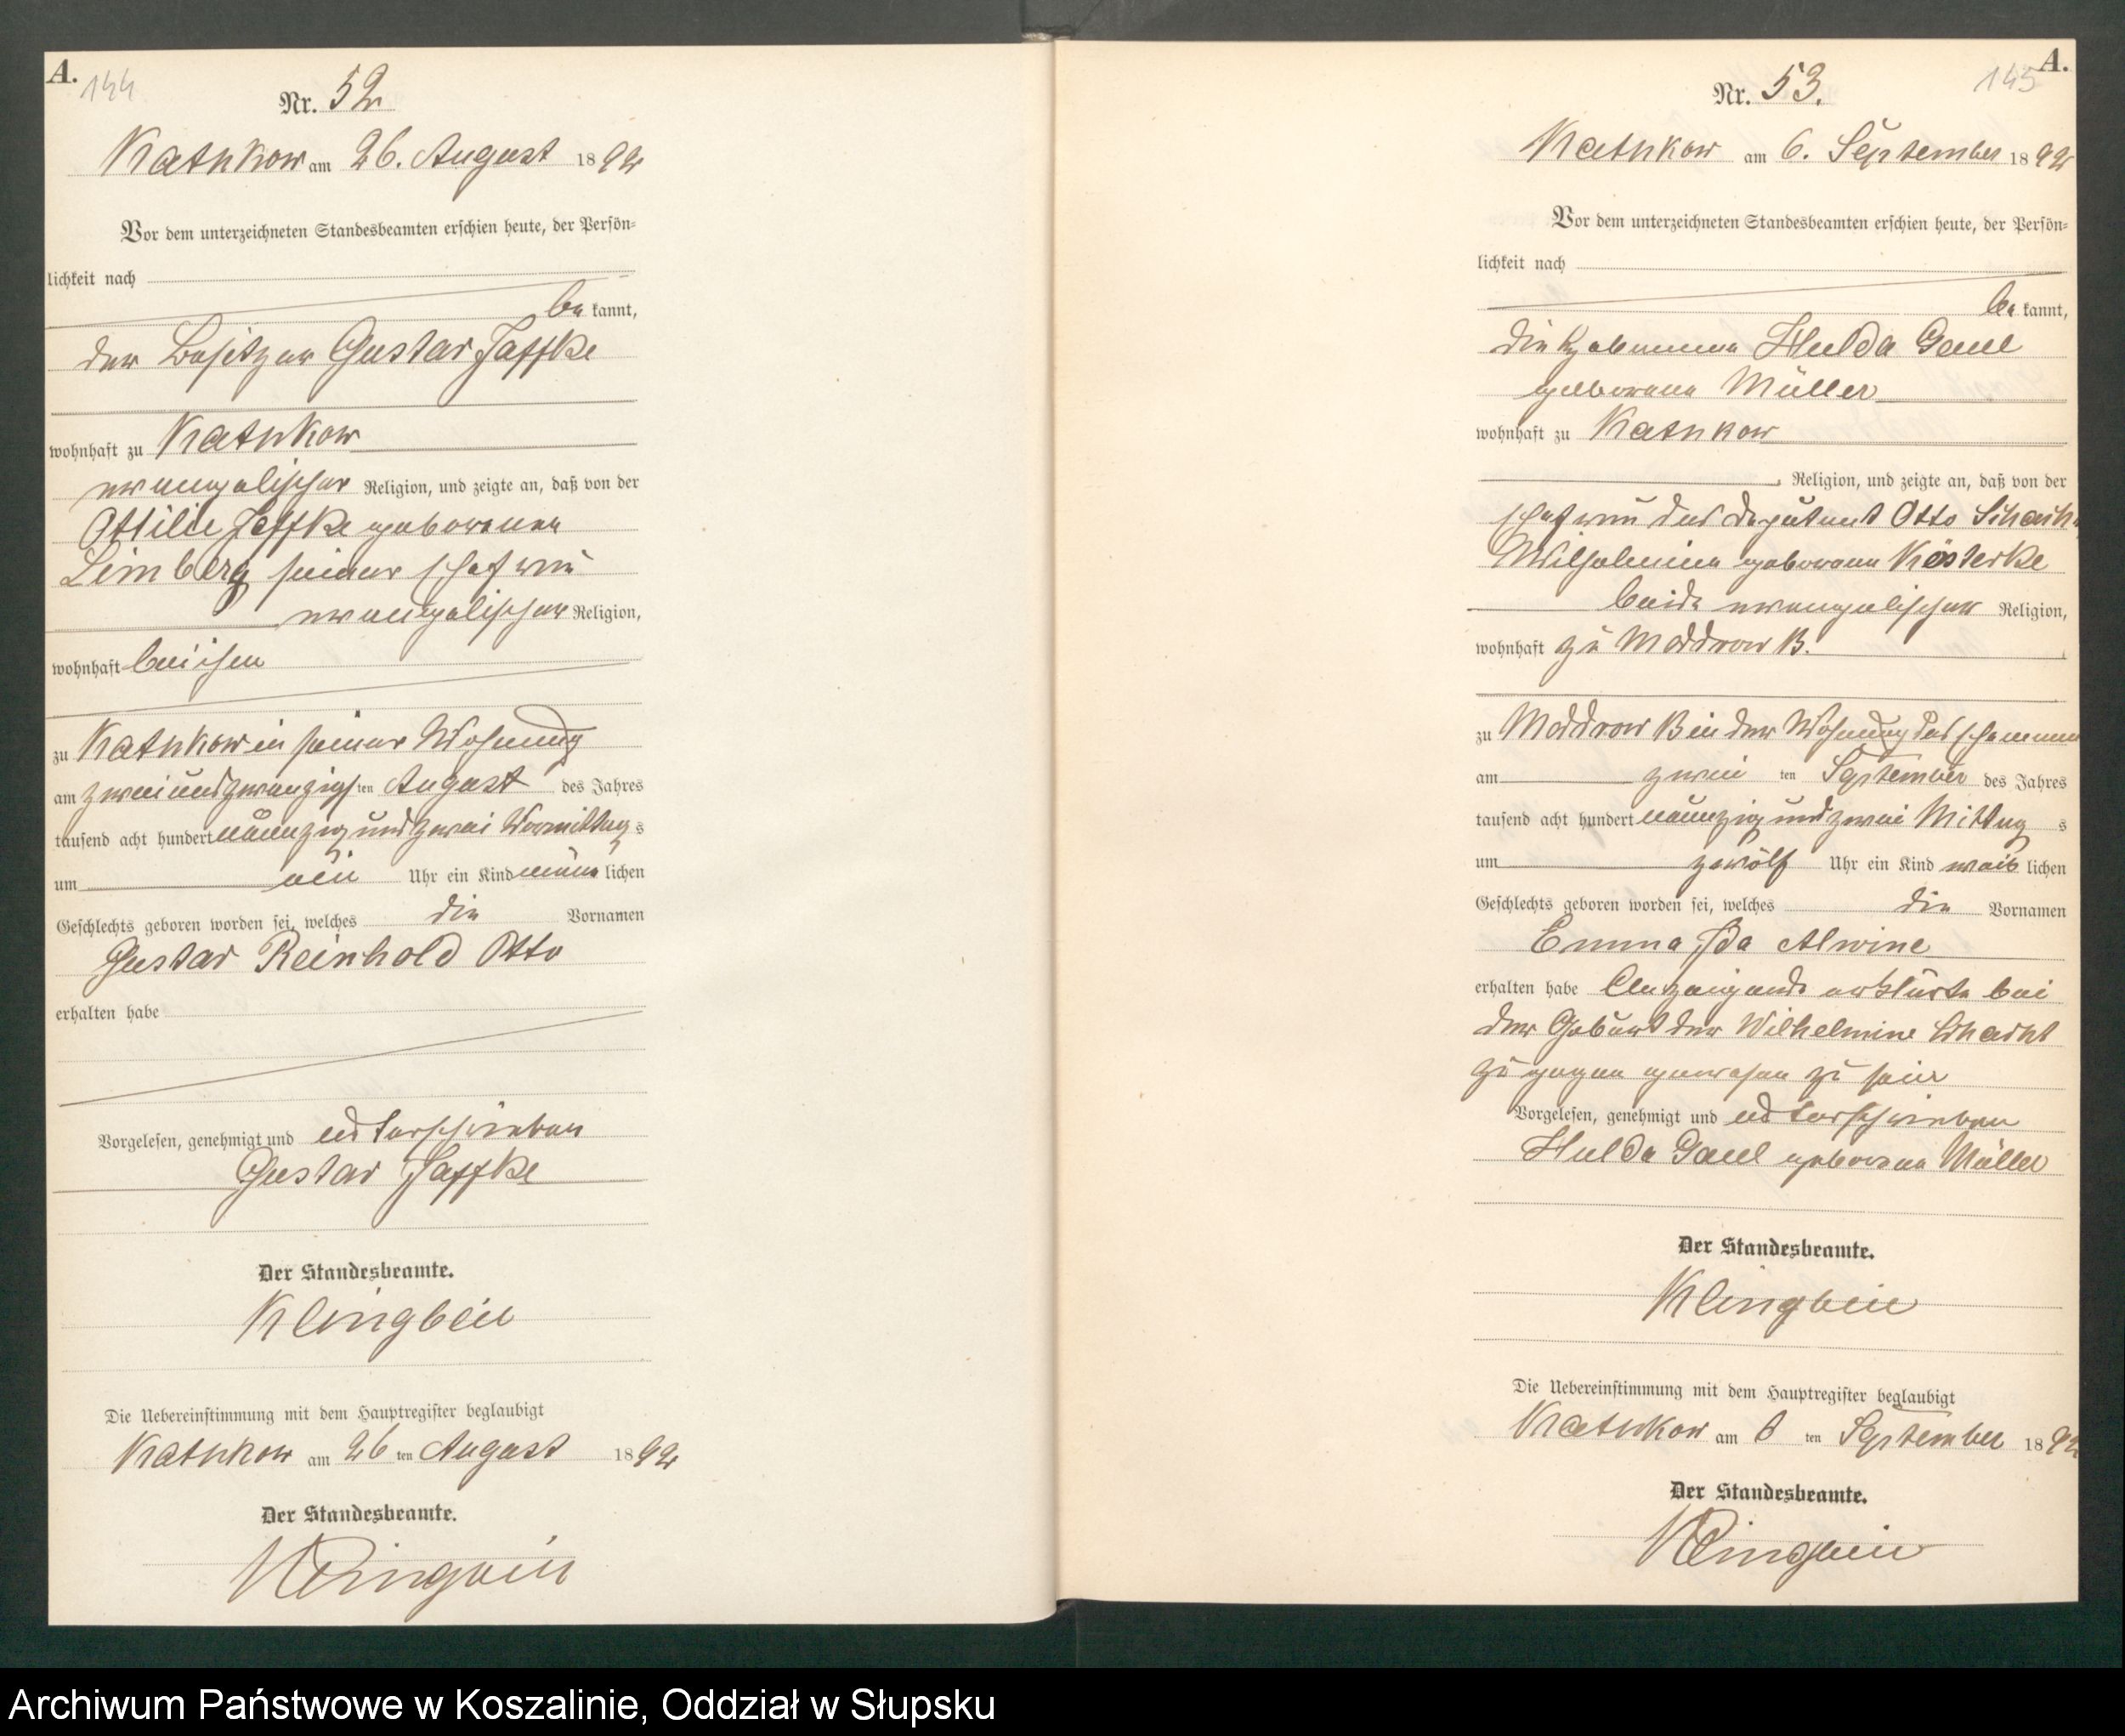 A.
144
Nr. 52
Kathkow am 26. August 1892
Vor dem unterzeichneten Standesbeamten erschien heute, der Persön-
lichkeit nach
be kannt,
der Besitzer Gustav Jaffke
wohnhaft zu Kathkow
evangelischer Religion, und zeigte an, daß von der
Ottilie Jaffke geborenen
Limberg seiner Ehefrau
evangelischer Religion,
wohnhaft bei ihm
zu Kathkow in seiner Wohnung
am zweiundzwanzigsten August des Jahres
tausend acht hundert neunzig und zwei Vormittags
um Uhr ein Kind männlichen
Geschlechts geboren worden sei, welches die Vornamen
Gustav Reinhold Otto
erhalten habe
Vorgelesen, genehmigt und unterschrieben
Gustav Jaffke
Der Standesbeamte.
Klingbeil
Die Uebereinstimmung mit dem Hauptregister beglaubigt
Kathkow am 26 ten August 1892
Der Standesbeamte.
Klingbeil
A.
145
Nr. 53.
Kathkow am 6. September 1892
Vor dem unterzeichneten Standesbeamten erschien heute, der Persön-
lichkeit nach
be kannt,
die Hebamme Hulda Gaul
geborene Müller
wohnhaft zu Kathkow
Religion, und zeigte an, daß von der
Ehefrau des Deputant Otto Schacht,
Wilhelmine geborene Kösterke
beide evangelischer Religion,
wohnhaft zu Moddrow B.
zu Moddrow B in der Wohnung des Ehemann
am zwei ten September des Jahres
tausend acht hundert neunzig und zwei Mittag s
um zwölf Uhr ein Kind weib lichen
Geschlechts geboren worden sei, welches die Vornamen
Emma Ida Alwine
erhalten habe Anzeigende erklärte bei
der Geburt der Wilhelmine Schacht
zugegen gewesen zu sein
Vorgelesen, genehmigt und unterschrieben
Hulda Gaul geborene Müller
Der Standesbeamte.
Klingbeil
Die Uebereinstimmung mit dem Hauptregister beglaubigt
Kathkow am 6 ten September 1892
Der Standesbeamte.
Klingbeil
Archiwum Państwowe w Koszalinie, Oddział w Słupsku